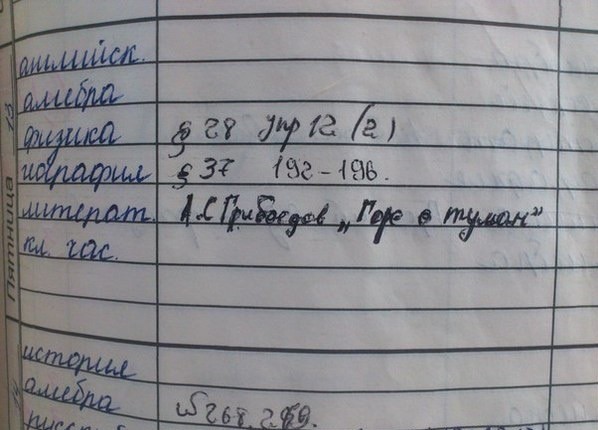 английск.
алгебра
физика § 28 упр 12 (2)
география § 37 192-196.
литерат. А.С Грибоедов „Горе о туман"
кл. час.
Пятница 13
история
алгебра №268, 269.
русский